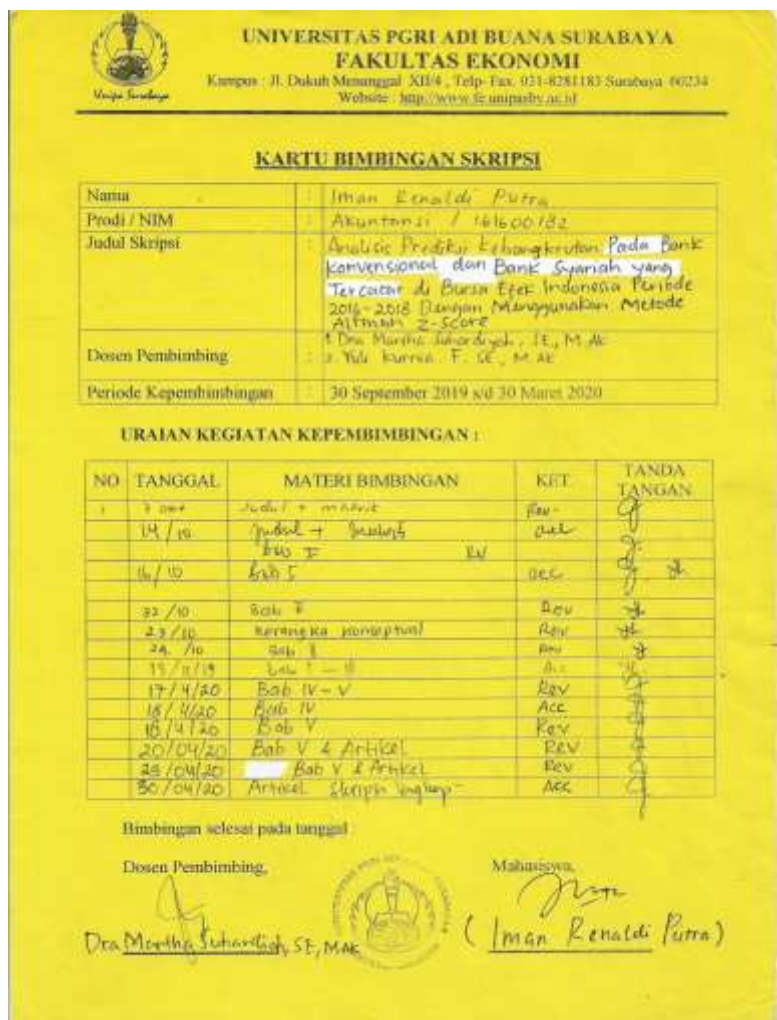 UNIVERSITAS PGRI ADI BUANA SURABAYA
FAKULTAS EKONOMI
Kampus : Jl. Dukuh Menanggal XII/4 , Telp-Fax. 031-8281183 Surabaya 60234
Website : http://www.fe.unipasby.ac.id
Unipa Surabaya
KARTU BIMBINGAN SKRIPSI
Nama : Iman Renaldi Putra
Prodi / NIM : Akuntansi / 161600182
Judul Skripsi : Analisis Prediksi Kebangkrutan Pada Bank
Konvensional dan Bank Syariah yang
Tercatat di Bursa Efek Indonesia Periode
2016-2018 Dengan Menggunakan Metode
Altman Z-Score
Dosen Pembimbing : 1. Dra Martha Suhardiyah, SE, M.Ak
2. Yuli Kurnia F. SE, M.Ak
Periode Kepembimbingan : 30 September 2019 s/d 30 Maret 2020
URAIAN KEGIATAN KEPEMBIMBINGAN :
NO TANGGAL MATERI BIMBINGAN KET TANDA TANGAN
1 7 Judul + Rev
14/10 Judul + acc
bab I
16/10 bab I acc
22/10 Bab II Rev
23/10 Kerangka konseptual Rev
24/10 Bab Rev
15/11/19 bab I - III Acc
17/4/20 Bab IV - V Rev
18/4/20 Bab IV Acc
18/4/20 Bab V Rev
20/04/20 Bab V & Artikel Rev
25/04/20 Bab V & Artikel Rev
30/04/20 Artikel Skripsi lengkap Acc
Bimbingan selesai pada tanggal :
Dosen Pembimbing, Mahasiswa,
Dra Martha Suhardiyah, SE, MAK ( Iman Renaldi Putra )